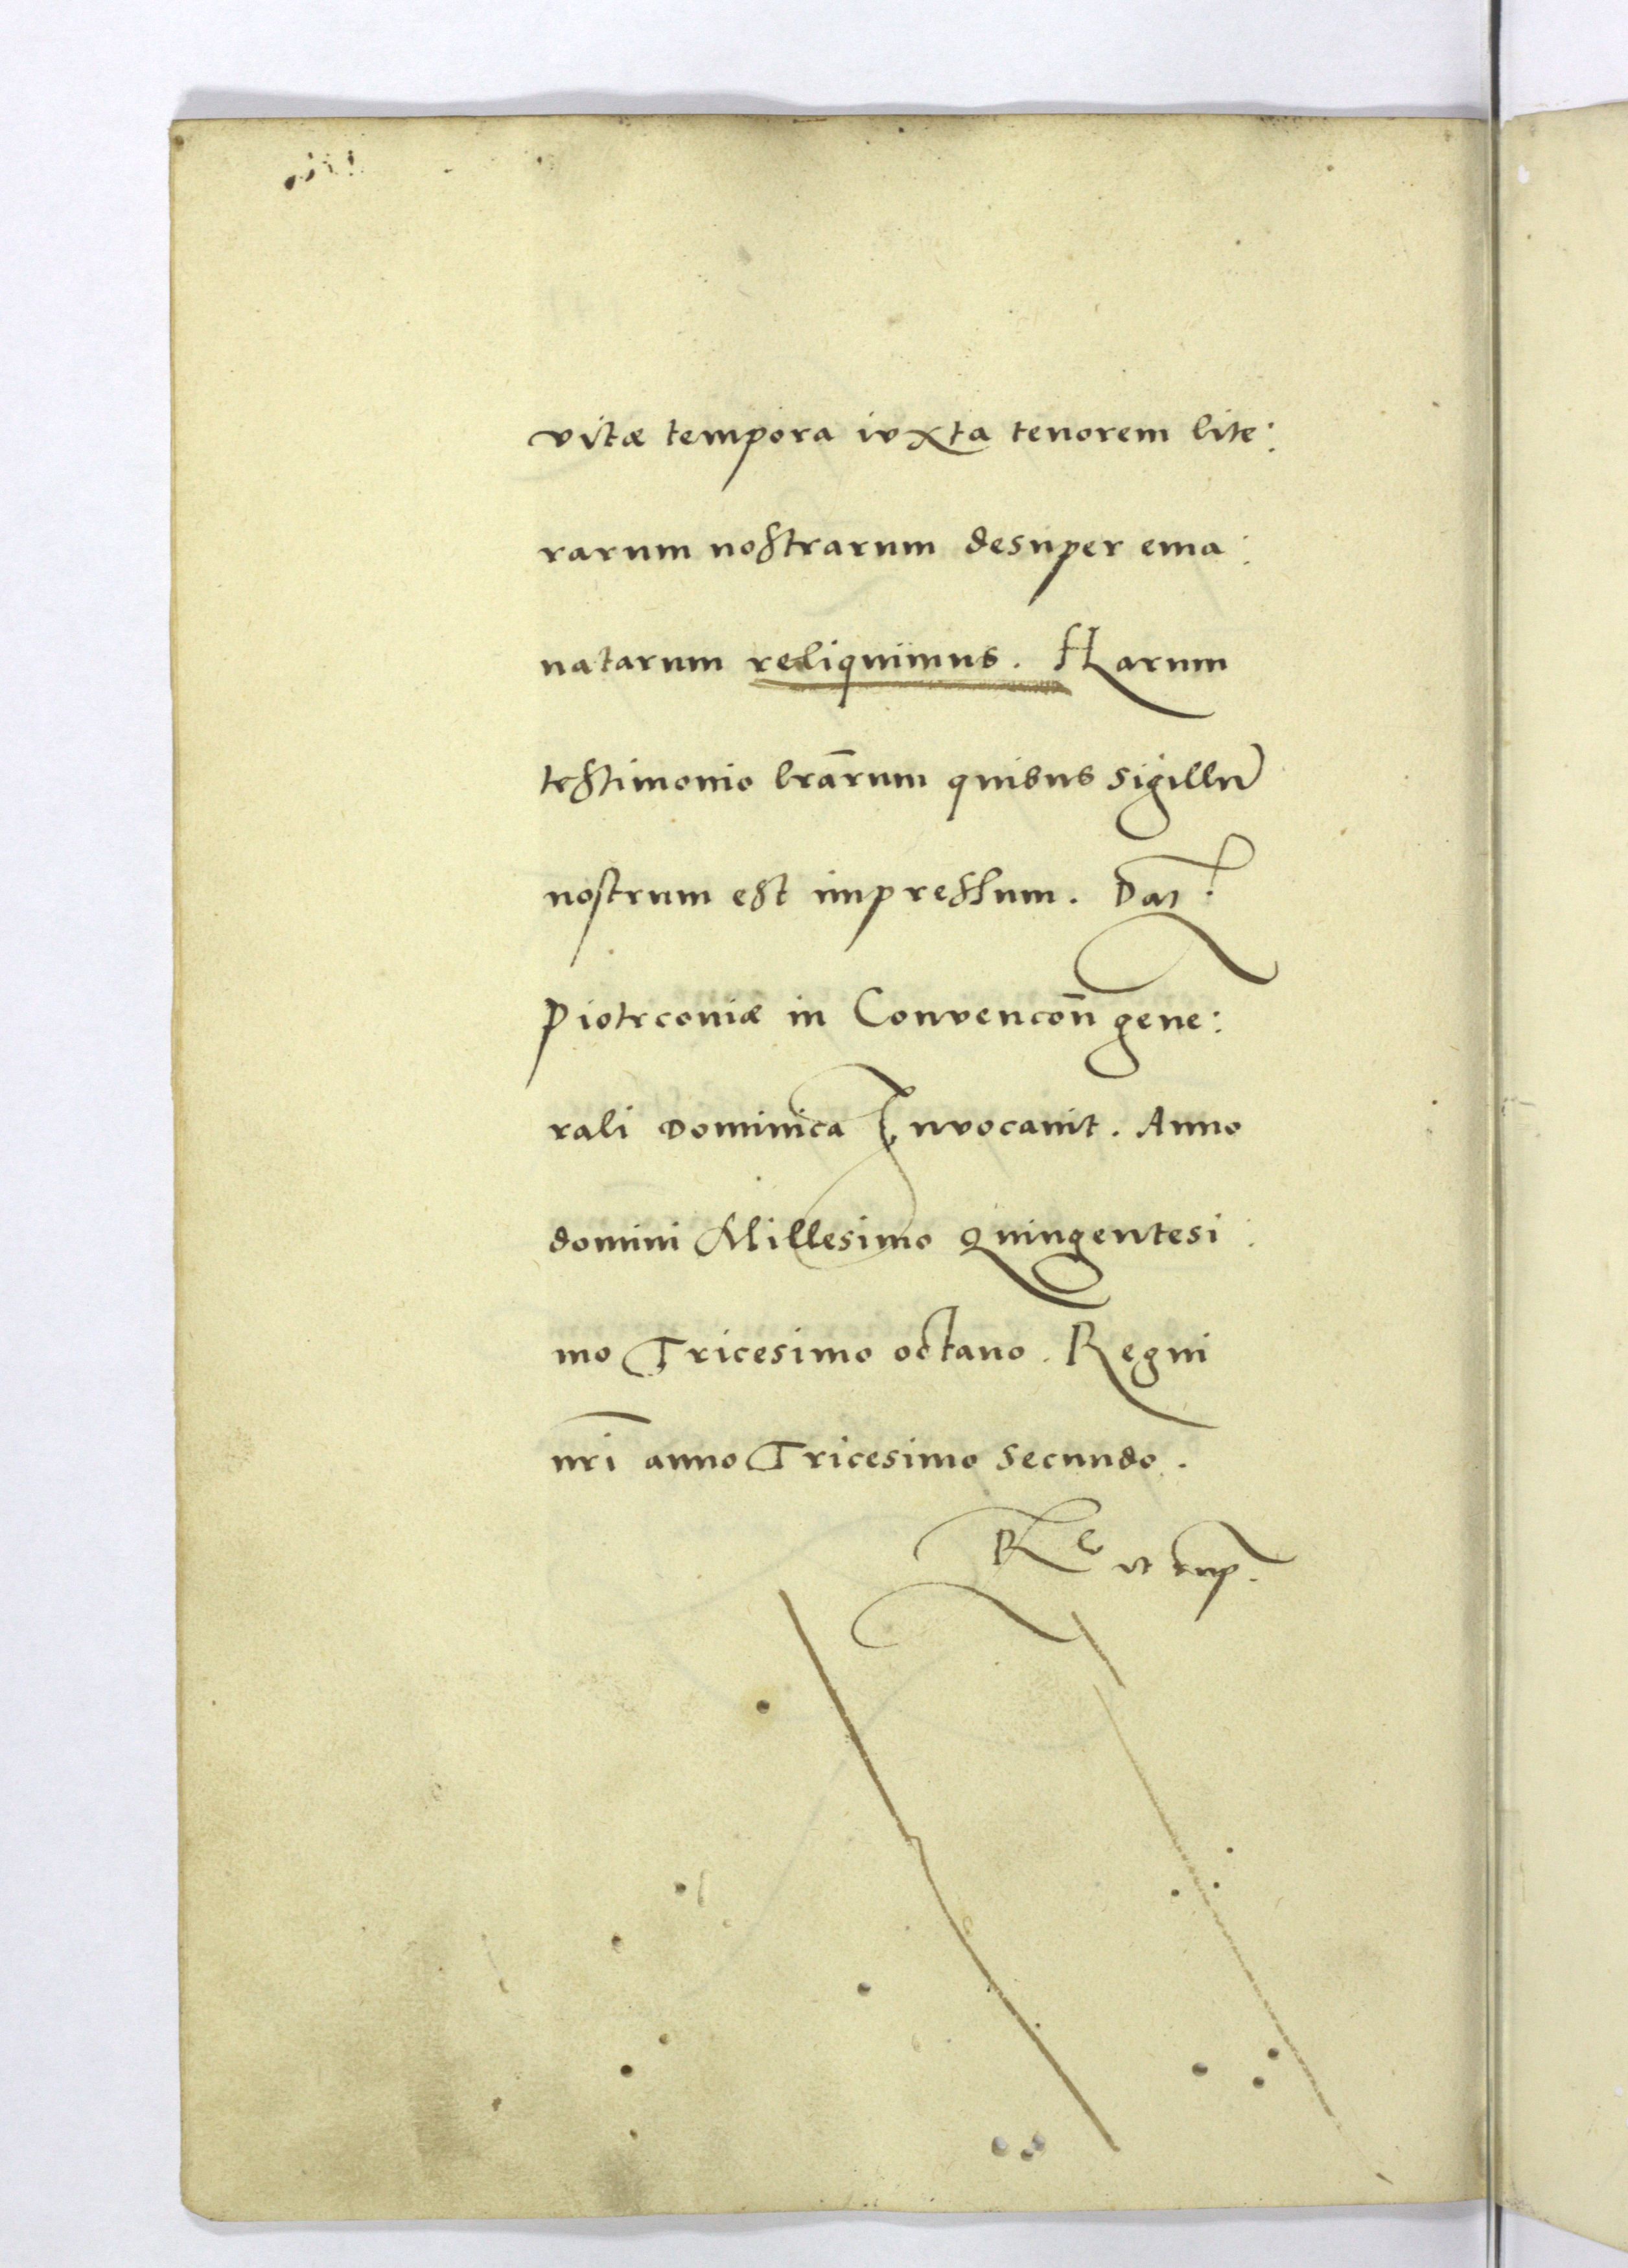 vitæ tempora iuxta tenorem lite:
rarum nostrarum desuper ema:
natarum reliquimus. Harum
testimonio lrārum quibus sigillū
nostrum est impressum. Dat:
Piotrconiæ in Convencōn gene:
rali Dominica Invocavit. Anno
domini Millesimo Quingentesi:
mo Tricesimo octavo. Regni
nrī anno Tricesimo secundo.
Rᵉ ut sup.